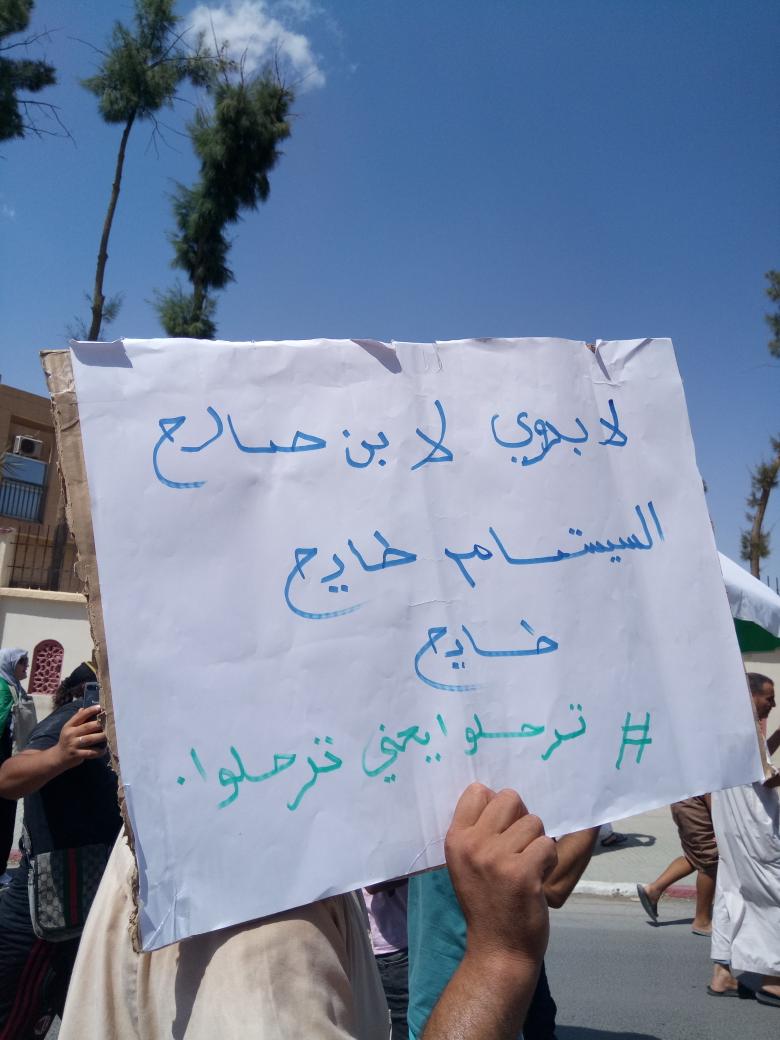 لا بدوي لا بن صالح
السيستام طايح
طايح
# ترحلوا يعني ترحلوا.